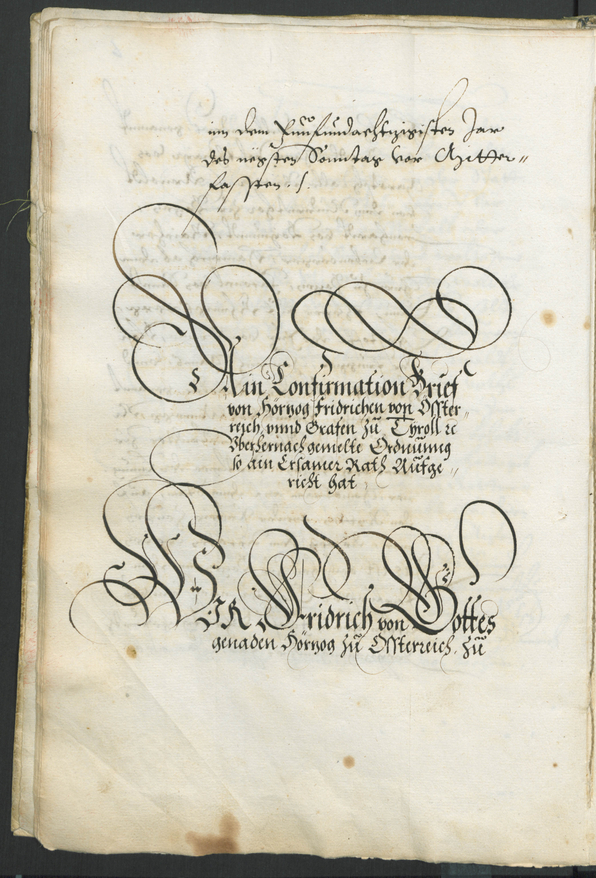 inn dem Fünfundachtzigisten Jar
des negsten Sonntag vor Mitter-
fassten ./.
Ain Confirmation Brief
von Hörzog Fridrichen von Osster-
reich, vnnd Grafen zu Tyroll ec
Vber hernach gemelte Ordnung
so ain Ersamer Rath Aufge-
richt hat
WIR Fridrich von Gottes
genaden Hörzog zu Össterreich, zu